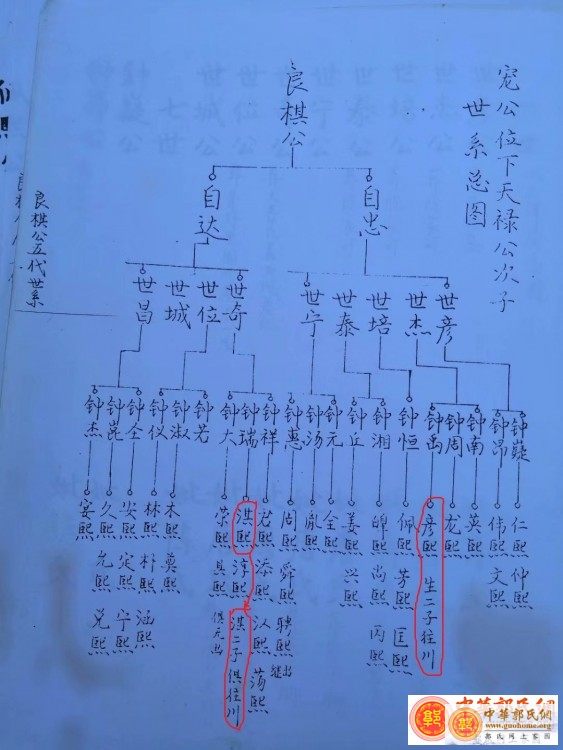 宠公位下天禄公次子
世系总图
良棋公
自忠
自达
世彦
世杰
世培
世泰
世宁
世奇
世位
世城
世昌
钟嶷
钟昂
钟南
钟周
钟禹
钟恒
钟湘
钟丘
钟元
钟汤
钟惠
钟祥
钟瑞
钟大
钟若
钟淑
钟仪
钟全
钟崑
钟杰
仁熙
仲熙
伟熙
文熙
英熙
龙熙
彦熙
生二子往川
佩熙
芳熙
匡熙
皥熙
尚熙
丙熙
姜熙
兴熙
全熙
胤熙
周熙
舜熙
聘熙
继出
君熙
添熙
汄熙
荡熙
淇熙
淳熙
淇二子俱住川
荣熙
具熙
俱元出
木熙
奠熙
林熙
朴熙
涵熙
安熙
定熙
宁熙
久熙
允熙
兑熙
宴熙
良棋公五代世系
中華郭氏网
中華郭氏網
www.guohome.org
郭氏网上家园